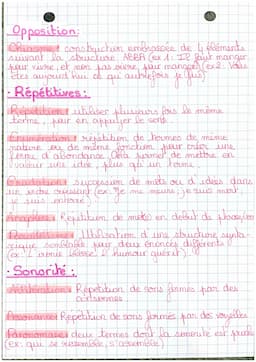 Opposition:
Chiasme: construction embrassée de 4 éléments
suivant la structure ABBA (ex 1: Il faut manger
pour vivre, et non pas vivre pour manger) (ex2: Vous
êtes aujourd'hui ce qu'autrefois je fus)
· Répétitives:
Répétition: utiliser plusieurs fois le même
terme, pour en appuyer le sens.
Énumération: répétition de termes de même
nature ou de même fonction pour créer une
forme d'abondance. Cela permet de mettre en
valeur une idée, plus qu'un terme.
Gradation: succession de mots ou d'idées dans
un ordre croissant (ex: Je me meurs, je suis mort,
je suis enterré).
Anaphore: Répétition de mots en début de phrase
Parallélisme: Utilisation d'une structure syntaxique
semblable pour deux énoncés différents
(ex: L'amour blesse, l'humour guérit).
· Sonorité:
Allitération: Répétition de sons formés par des
consonnes
Assonance: Répétition de sons formés par des voyelles
Paronomase: deux termes dont la sonorité est proche
(ex: qui se ressemble, s'assemble)